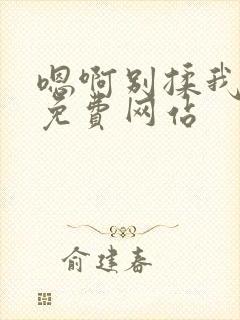 嗯啊别揉我
免費网佔
俞建春